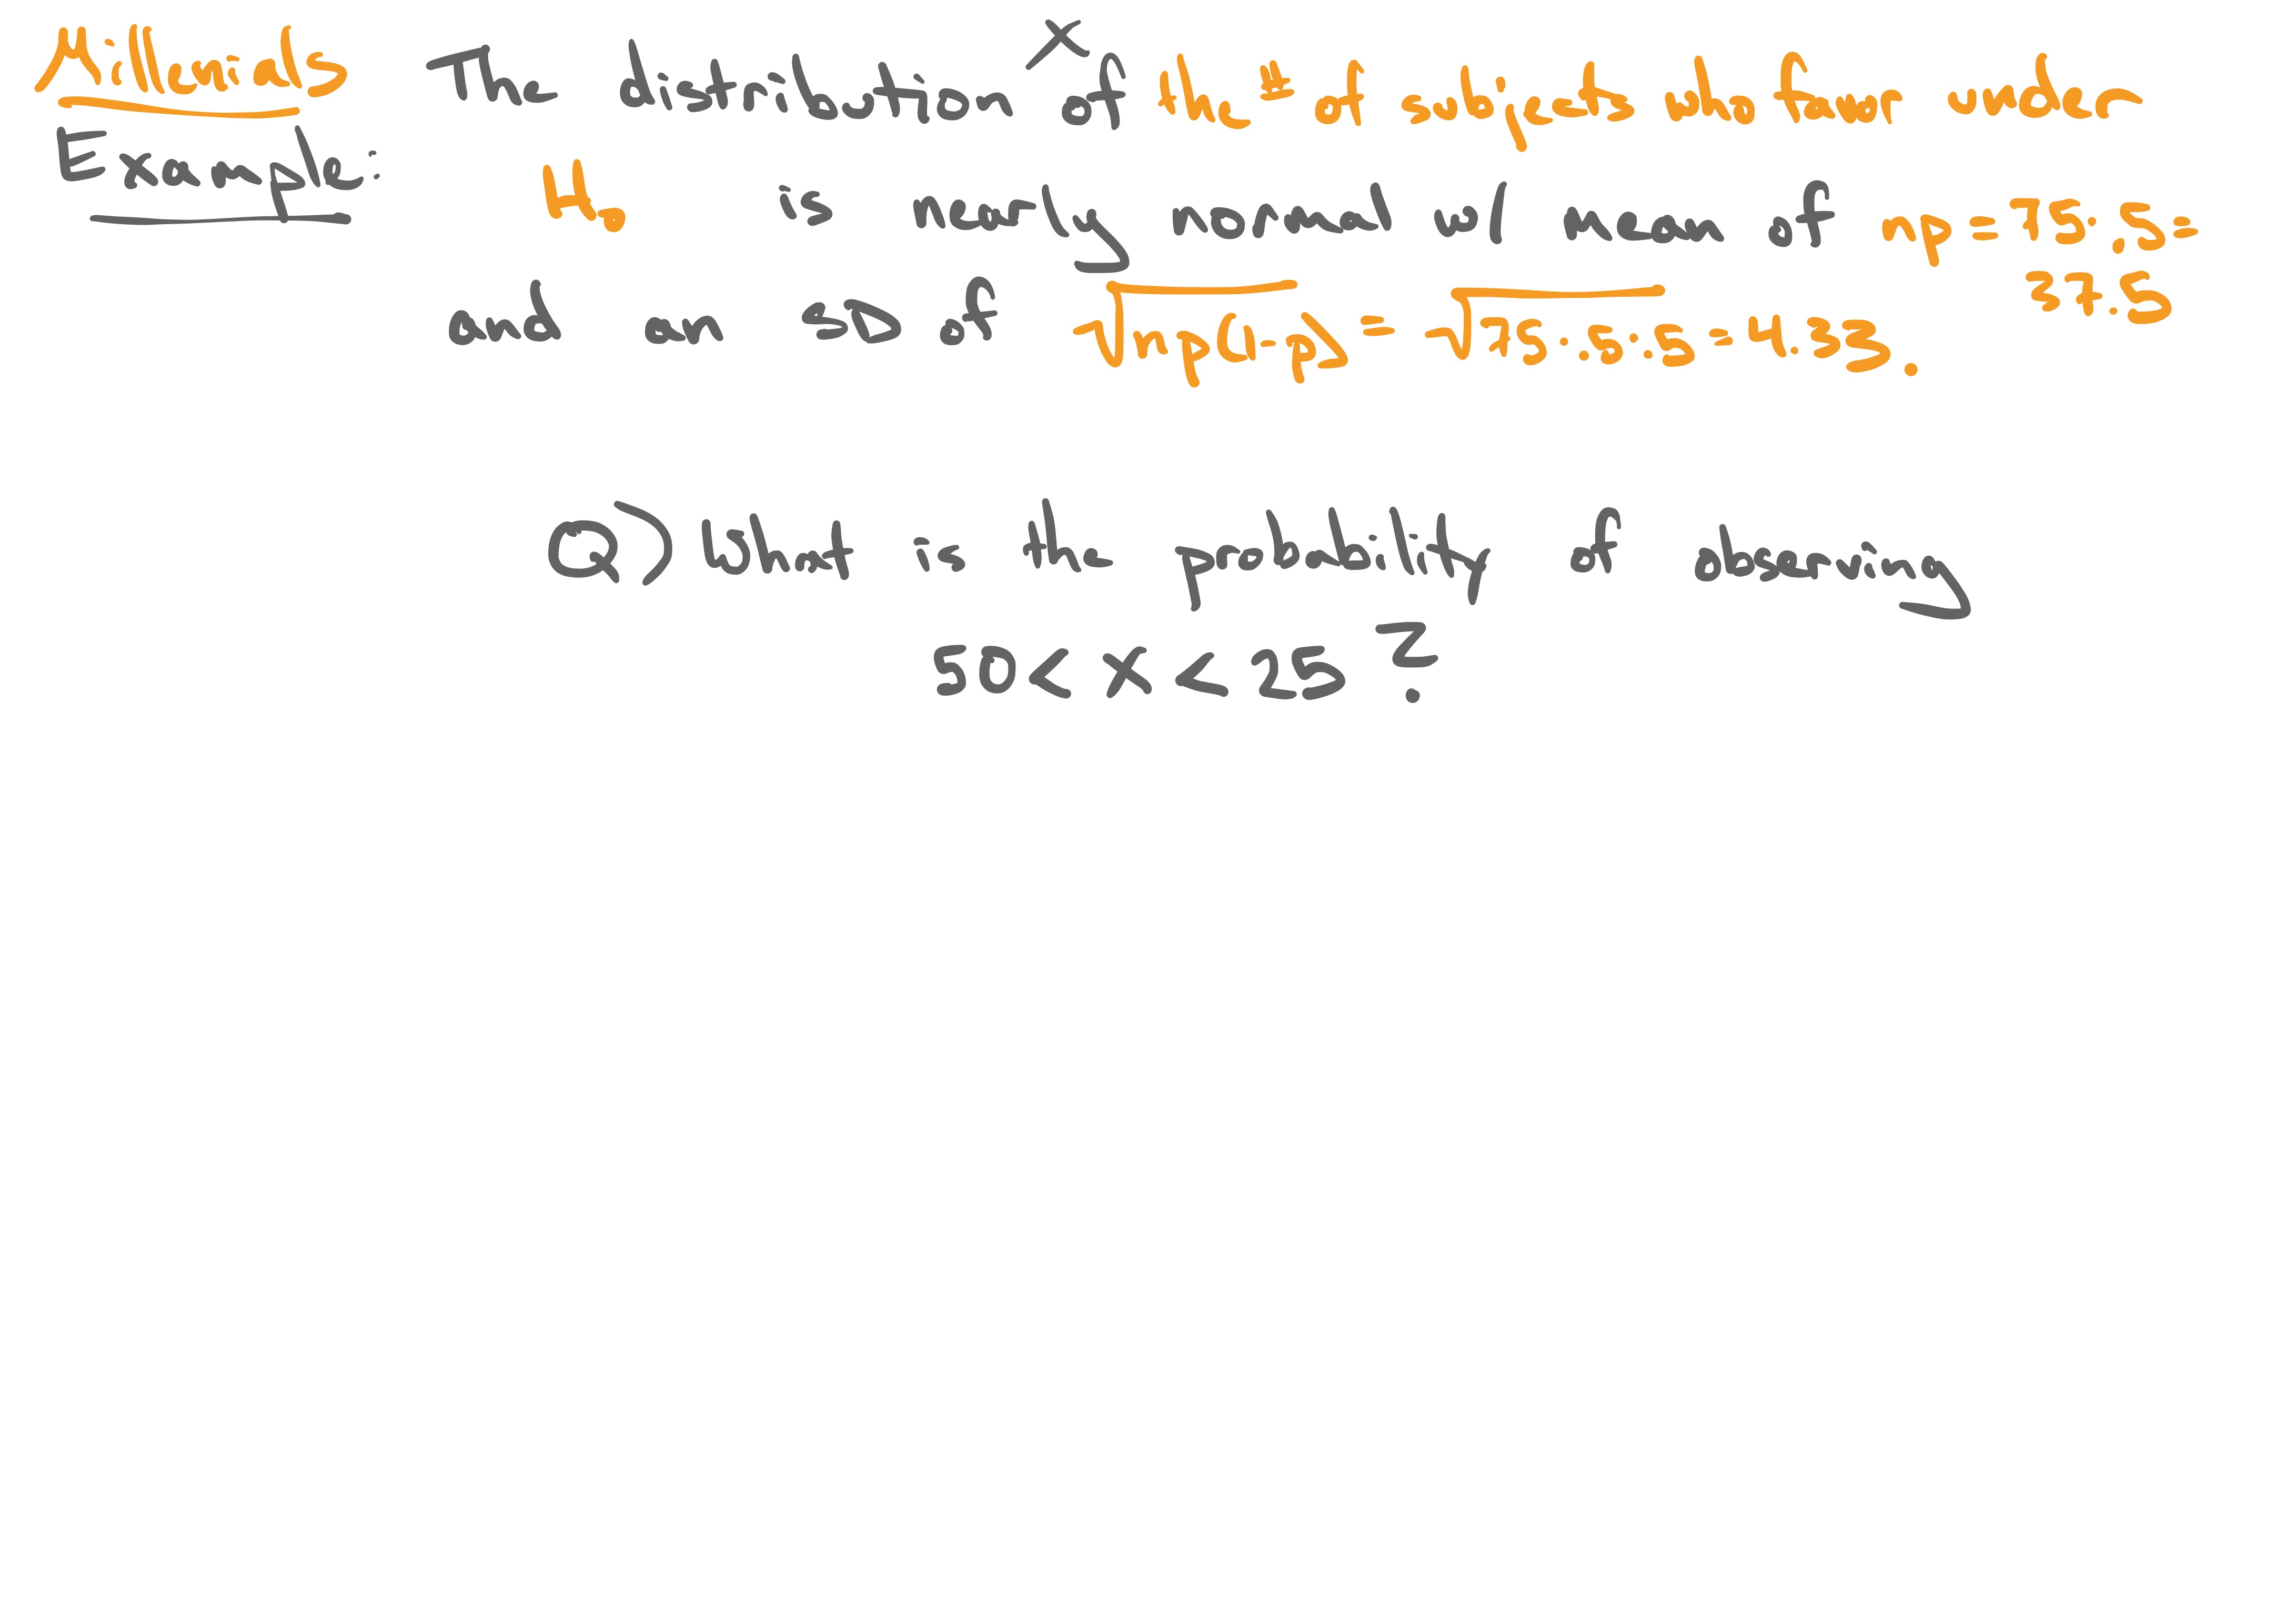 Millenials The distribution of X the # of subjects who favor under
Example: H₀ is nearly normal w/ mean of np = 75·.5 =
37.5
and an SD of √np(1-p) = √75·.5·.5 = 4.33.
Q) What is the probability of observing
50 < X < 25 ?